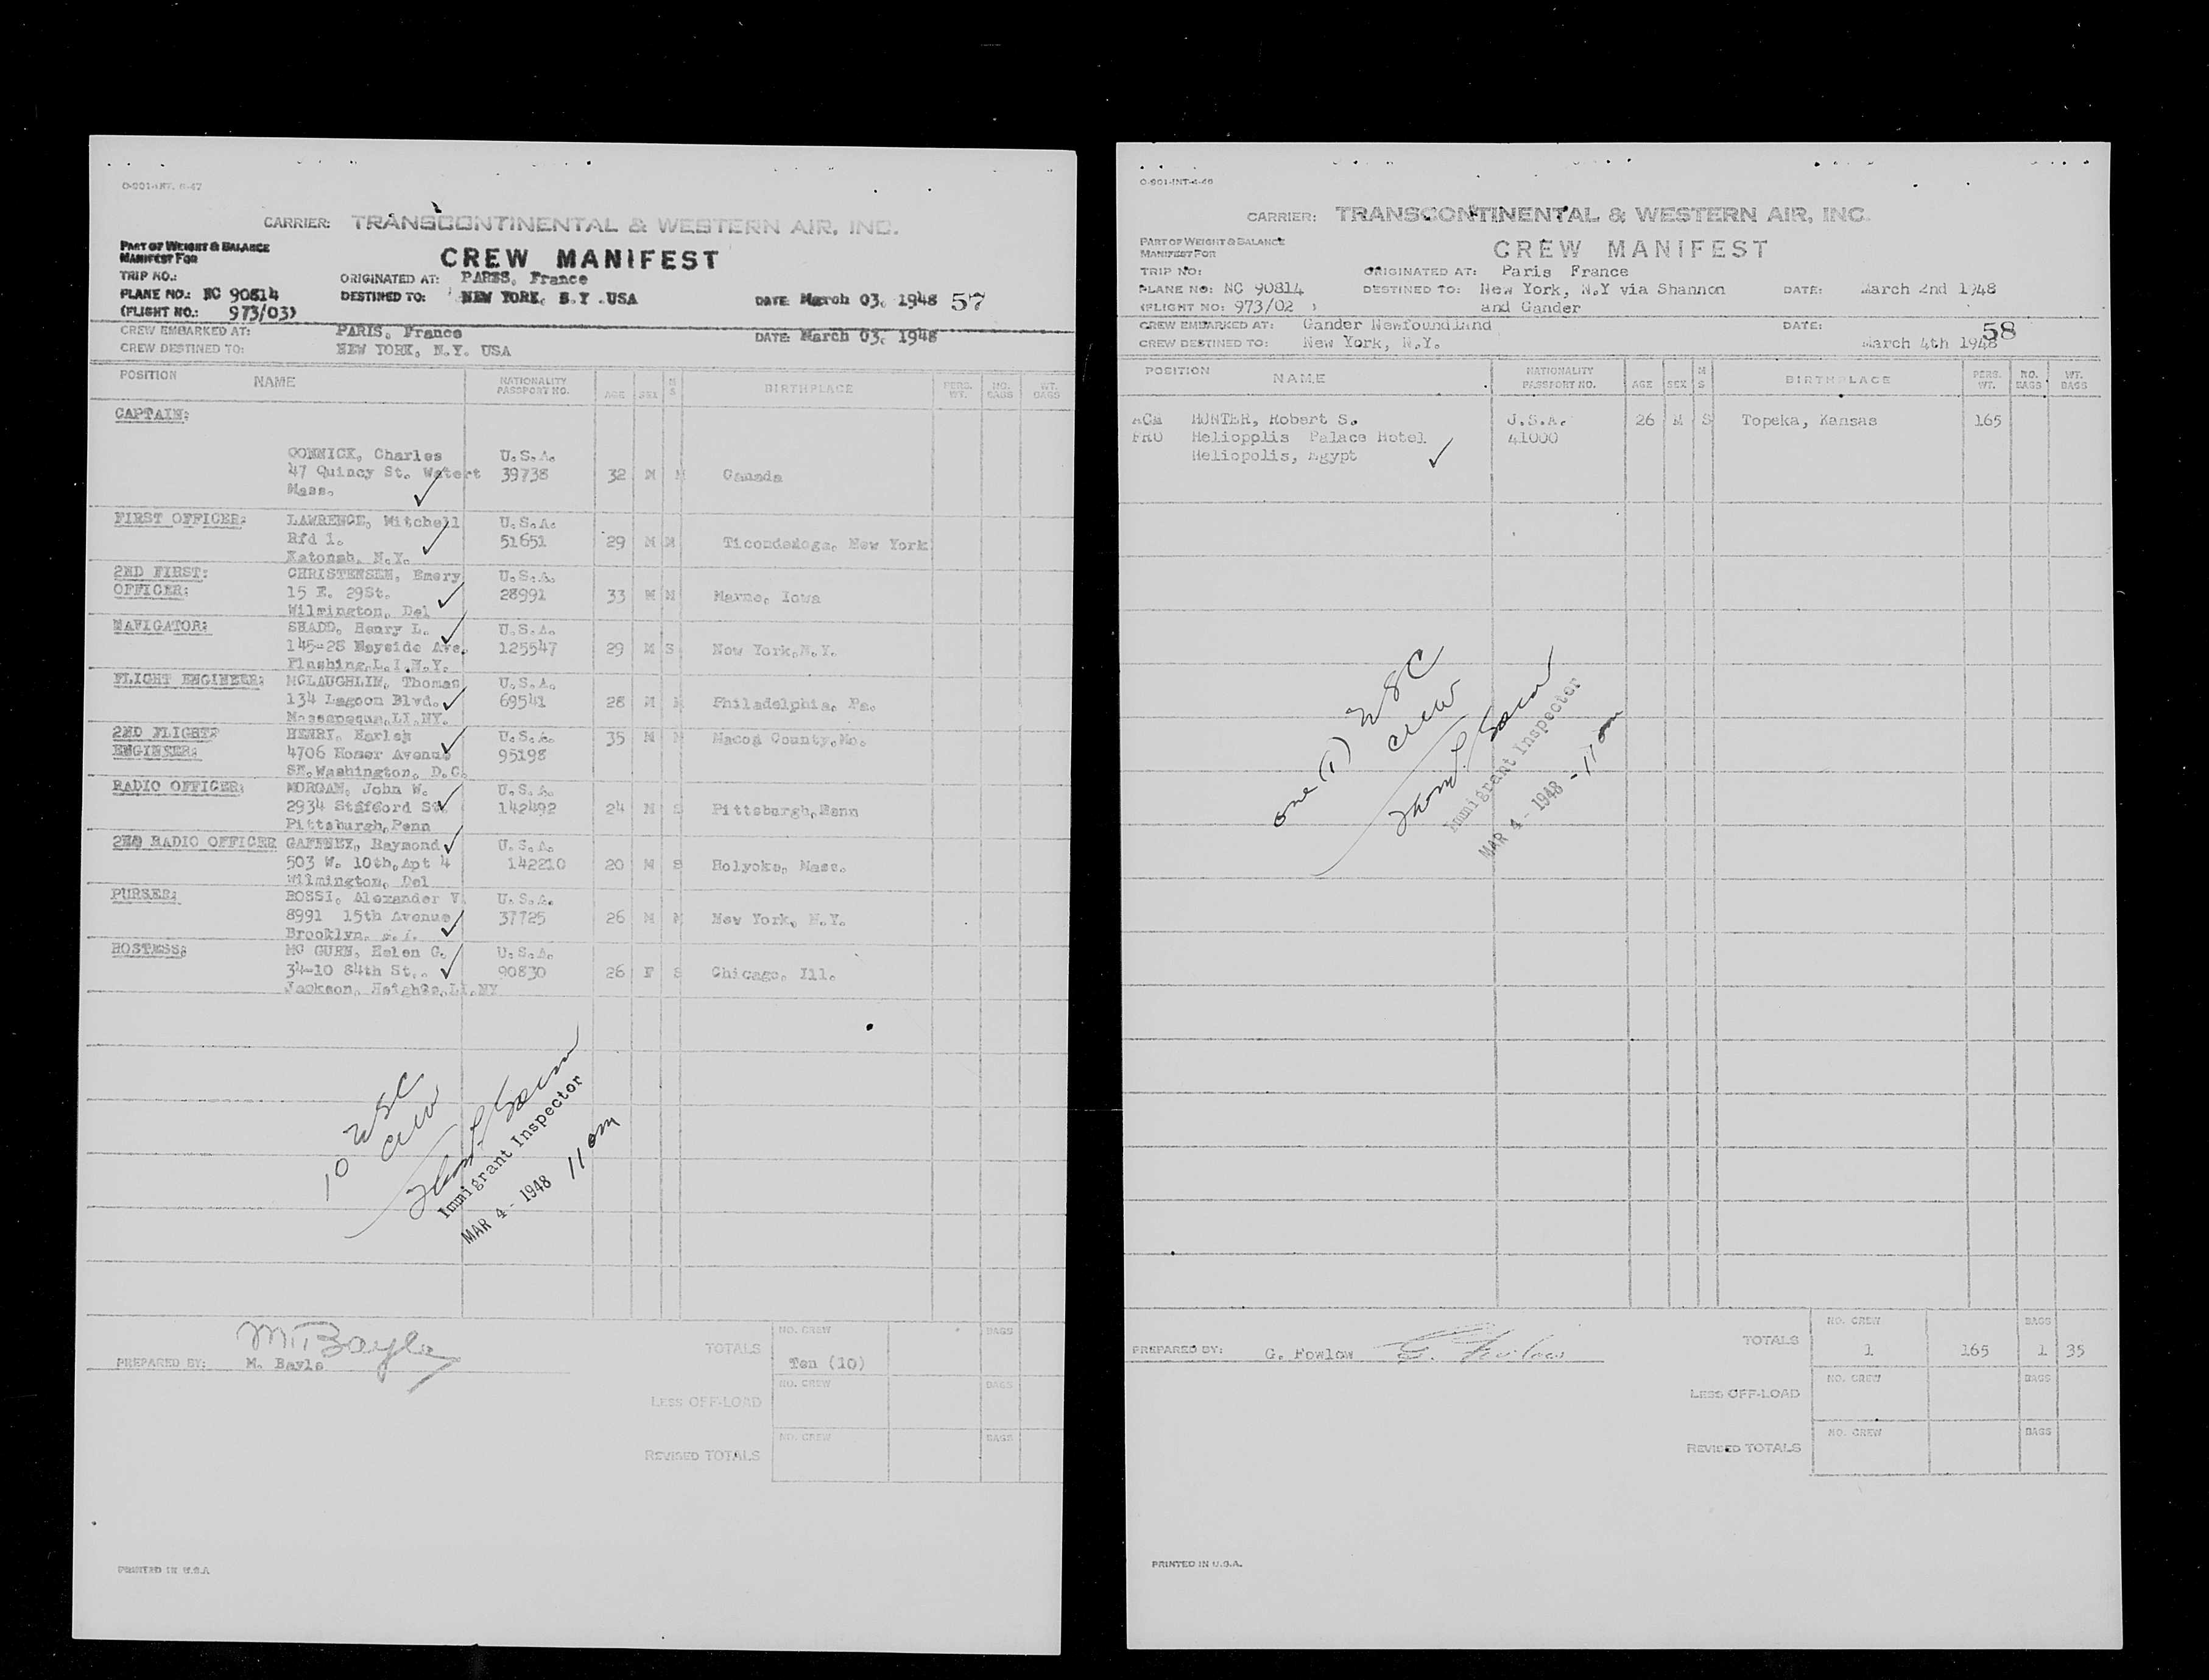 O-901-INT. 6-47
CARRIER: TRANSCONTINENTAL & WESTERN AIR, INC.
PART OF WEIGHT & BALANCE
MANIFEST FOR
CREW MANIFEST
TRIP NO.: ORIGINATED AT: PARIS, France
PLANE NO.: NC 90814 DESTINED TO: NEW YORK, N.Y .USA DATE: March 03, 1948 57
(FLIGHT NO.: 973/03)
CREW EMBARKED AT: PARIS, France DATE: March 03, 1948
CREW DESTINED TO: NEW YORK, N.Y. USA
POSITION NAME NATIONALITY PASSPORT NO. AGE SEX M S BIRTHPLACE PERS. WT. NO. BAGS WT. BAGS
CAPTAIN:
CONNICK, Charles U.S.A.
47 Quincy St. Watert 39738 32 M M Canada
Mass.
FIRST OFFICER: LAWRENCE, Mitchell U.S.A.
Rfd 1. 51651 29 M M Ticonderoga, New York
Katonah, N.Y.
2ND FIRST: CHRISTENSEN, Emery U.S.A.
OFFICER: 15 E. 29St. 28991 33 M M Marne, Iowa
Wilmington, Del
NAVIGATOR: SHADD, Henry L. U.S.A.
145-28 Bayside Ave. 125547 29 M S New York,N.Y.
Flushing,L.I.N.Y.
FLIGHT ENGINEER: MCLAUGHLIN, Thomas U.S.A.
134 Lagoon Blvd. 69541 28 M M Philadelphia, Pa.
Massapequa,LI.NY.
2ND FLIGHT: HENRY, Harlen U.S.A. 35 M M Macon County,Mo.
ENGINEER: 4706 Homer Avenue 95198
SE.Washington, D.C.
RADIO OFFICER: MORGAN, John W. U.S.A.
2934 Stafford St. 142492 24 M S Pittsburgh,Penn
Pittsburgh,Penn
2ND RADIO OFFICER GAFFNEY, Raymond U.S.A.
503 W. 10th,Apt 4 142210 20 M S Holyoke, Mass.
Wilmington, Del
PURSER: ROSSI, Alexander V. U.S.A.
8991 15th Avenue 37725 26 M M New York, N.Y.
Brooklyn,
HOSTESS: MC GURN, Helen G. U.S.A.
34-10 84th St.. 90830 26 F S Chicago, Ill.
Jackson, Heights,LI.NY
10 USC
crew
Immigrant Inspector
MAR 4 - 1948 11 am
M. Bayle
PREPARED BY: M. Bayle
TOTALS NO. CREW Ten (10) BAGS
LESS OFF-LOAD NO. CREW BAGS
REVISED TOTALS NO. CREW BAGS
PRINTED IN U.S.A
O-901-INT-4-46
CARRIER: TRANSCONTINENTAL & WESTERN AIR, INC.
PART OF WEIGHT & BALANCE
MANIFEST FOR
CREW MANIFEST
TRIP NO: ORIGINATED AT: Paris France
PLANE NO: NC 90814 DESTINED TO: New York, N.Y via Shannon DATE: March 2nd 1948
(FLIGHT NO: 973/02 ) and Gander
CREW EMBARKED AT: Gander Newfoundland DATE: 58
CREW DESTINED TO: New York, N.Y. March 4th 1948
POSITION NAME NATIONALITY PASSPORT NO. AGE SEX M S BIRTHPLACE PERS. WT. NO. BAGS WT. BAGS
ACM HUNTER, Robert S. U.S.A. 26 M S Topeka, Kansas 165
FRO Heliopolis Palace Hotel 41000
Heliopolis, Egypt
one (1) USC
crew
Immigrant Inspector
MAR 4 - 1948 - 11 am
PREPARED BY: G. Fowlow G. Fowlow
TOTALS NO. CREW 1 165 BAGS 1 35
LESS OFF-LOAD NO. CREW BAGS
REVISED TOTALS NO. CREW BAGS
PRINTED IN U.S.A.